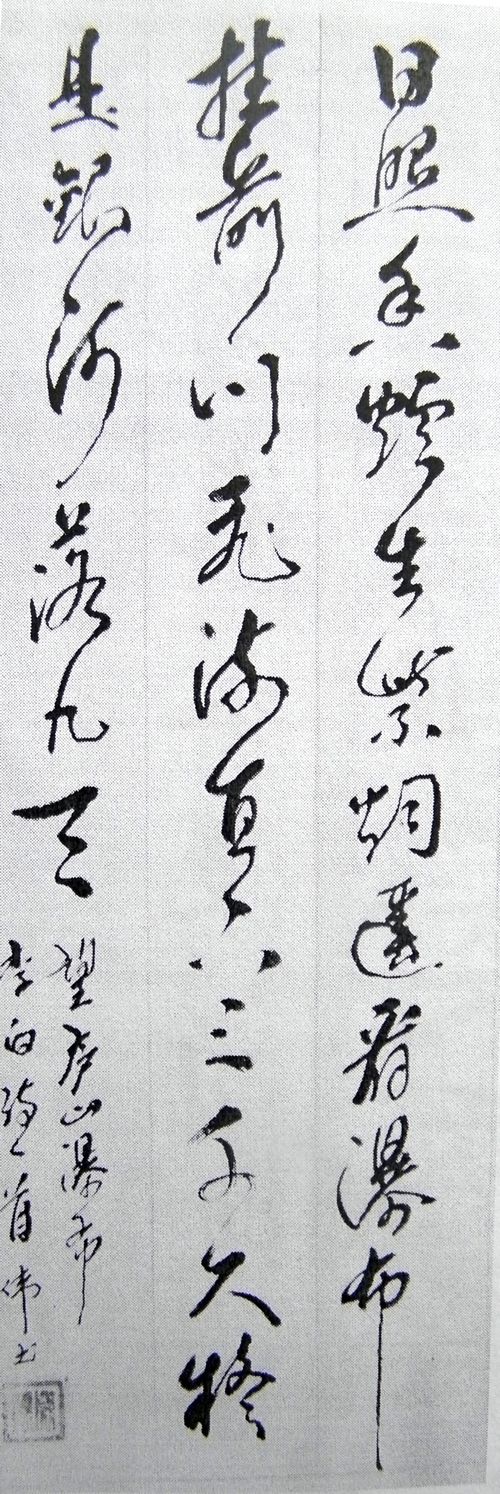 日照香爐生紫烟遥看瀑布
挂前川飛流直下三千尺疑
是銀河落九天
望庐山瀑布
李白詩一首伟书